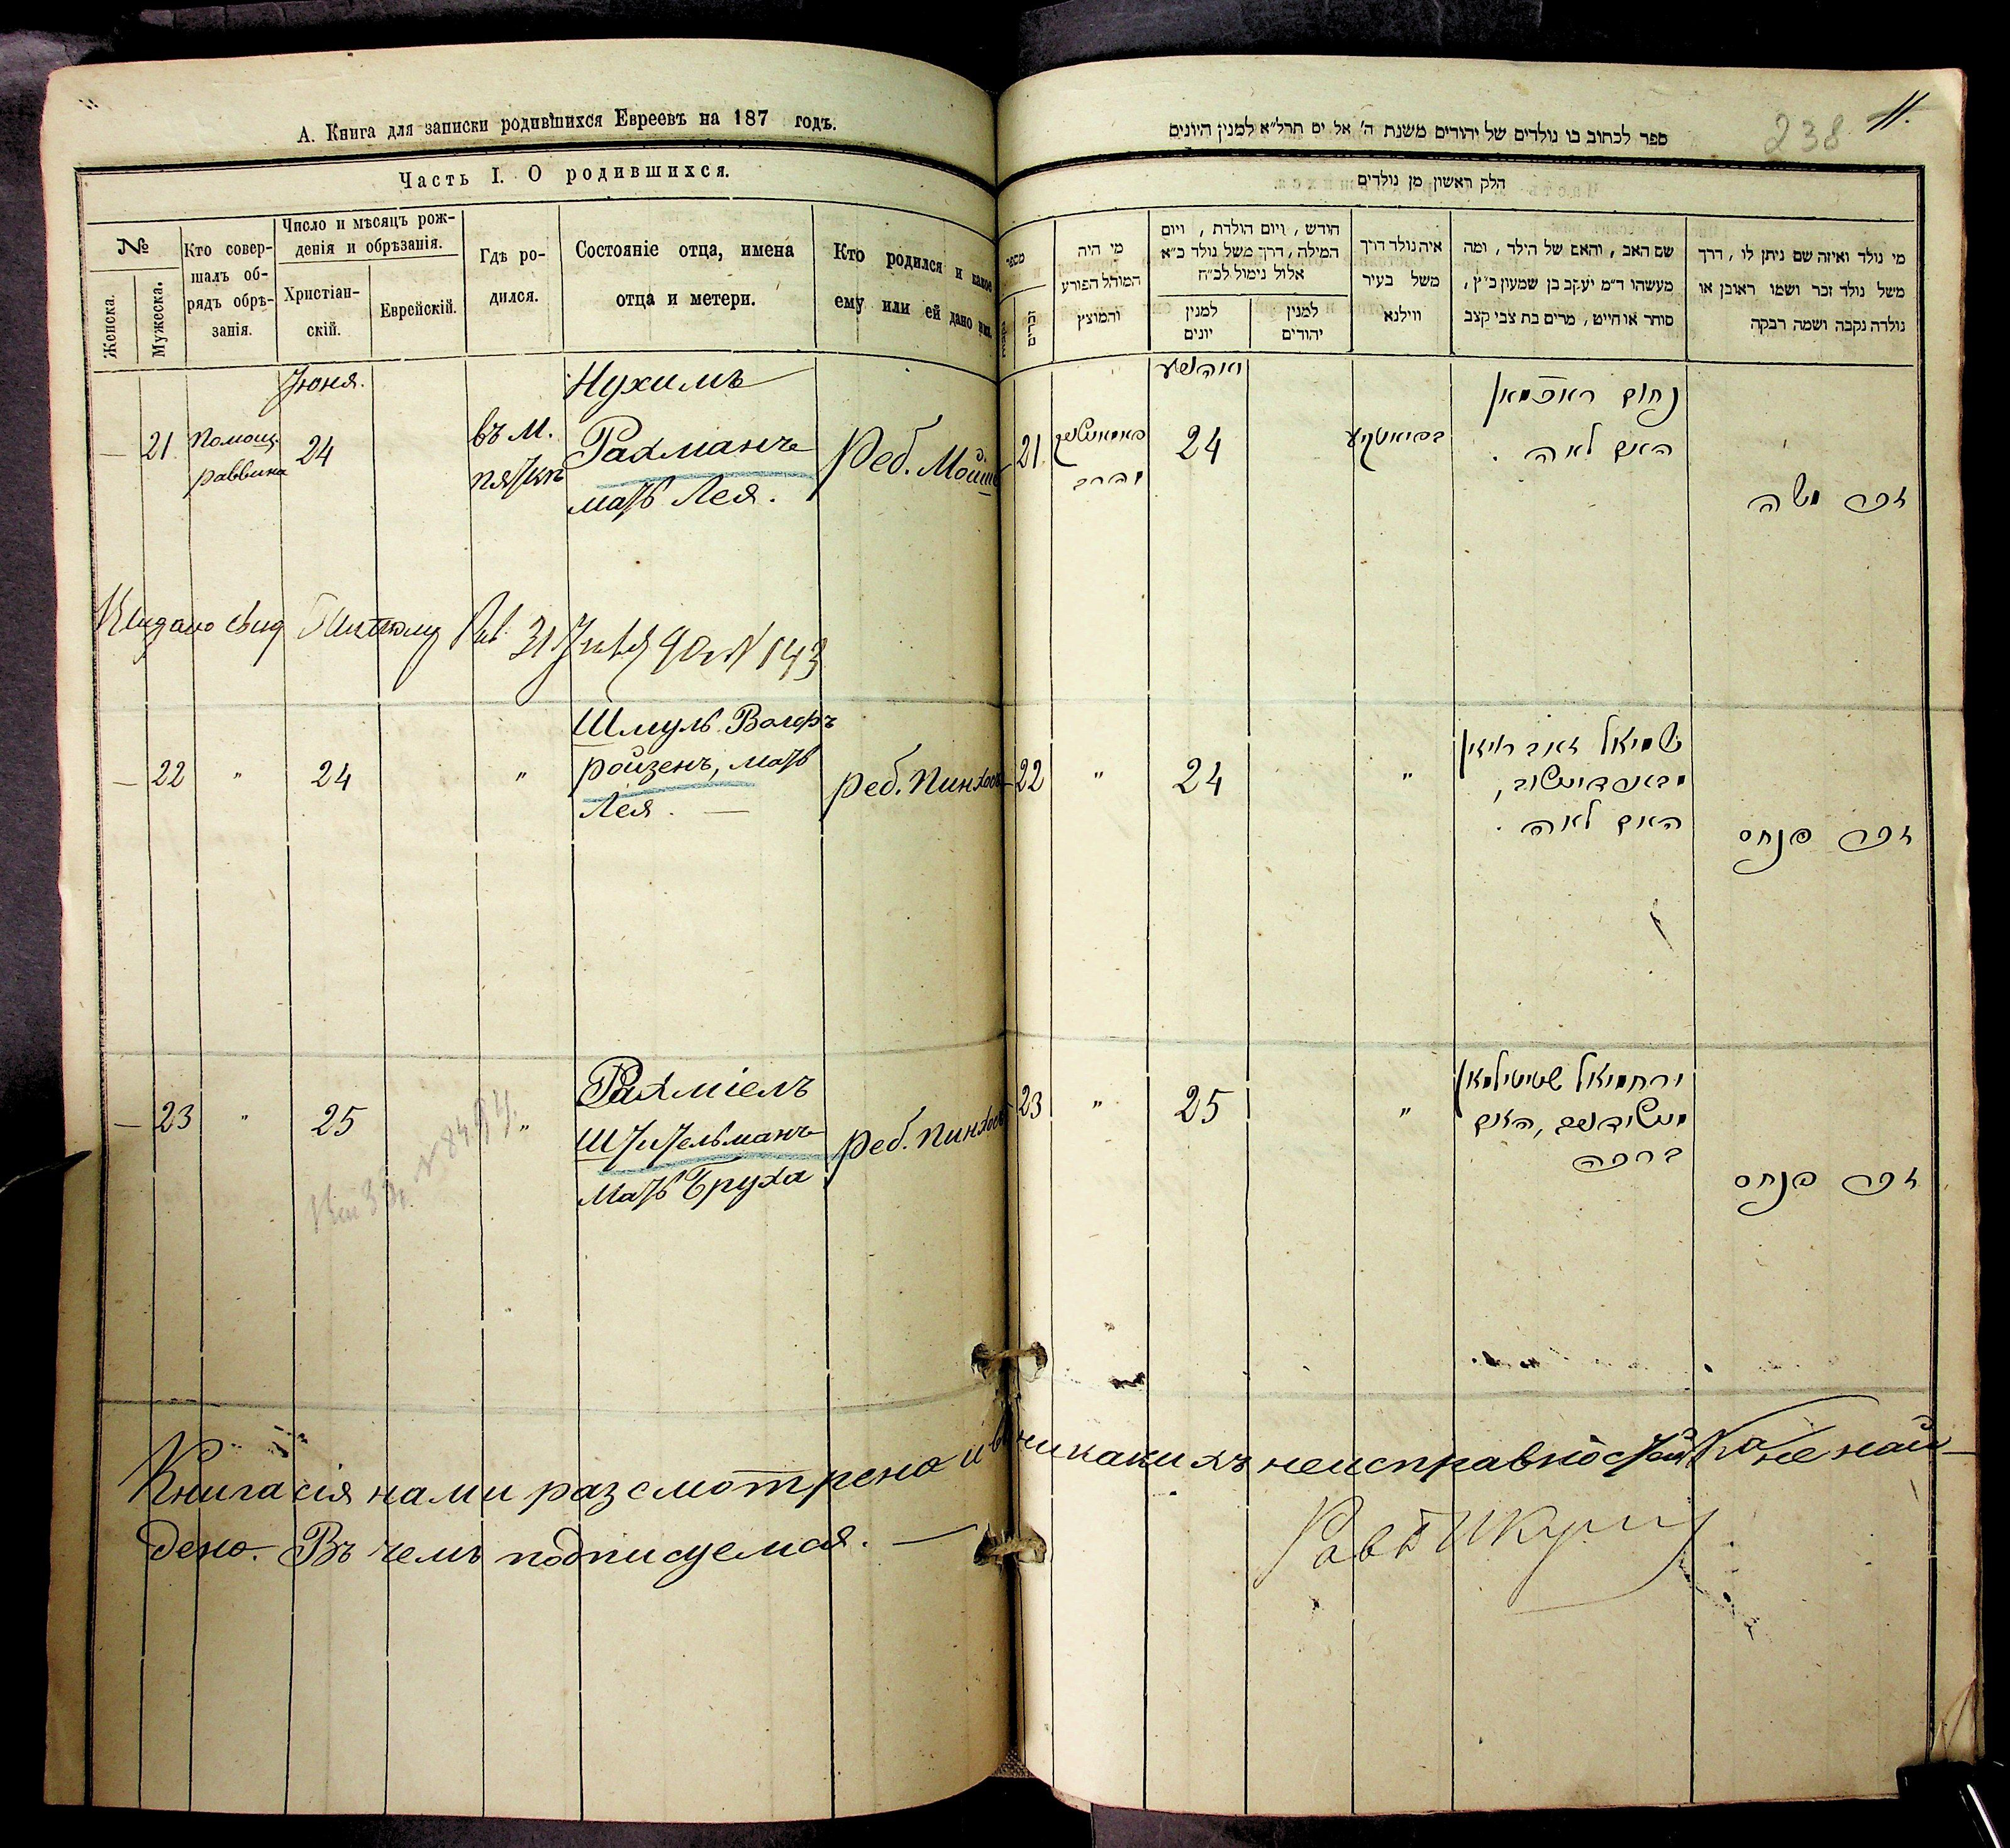 А. Книга для записки родившихся Евреевъ на 187 годъ.
Часть I. О родившихся.
№
Женска.
Мужеска.
Кто совер-
шалъ об-
рядъ обрѣ-
занія.
Число и мѣсяцъ рож-
денія и обрѣзанія.
Христіан-
скій.
Еврейскій.
Гдѣ ро-
дился.
Состояніе отца, имена
отца и метери.
Кто родился и какое
ему или ей дано имя.
Іюня.
— 21
Помощ.
раввина
24
въ м.
Нухимъ
Рахманъ
мать Лея.
Реб. Мойше
31 90 N 143
— 22 " 24 "
Шмуль Вольфъ
ройзенъ, мать
Лея. —
Реб. Пинхосъ
— 23 " 25 "
Рахміелъ
Штительманъ
Мать Бруха
Реб. Пинхосъ
Книга сія нами разсмотрена и никакихъ неисправностей не най-
дено. Въ чемъ подписуемся. —
238 11.
ספר לכתוב בו נולדים של יהודים משנת ה' אל ים תרל"א למנין היונים
חלק ראשון מן נולדים
מספר
נקבות
זכרים
מי היה
המוהל הפורע
והמוצץ
חודש, ויום הולדת, ויום
המילה, דרך משל נולד כ"א
אלול נימול לכ"ח
למנין
יונים
למנין
יהודים
איה נולד דרך
משל בעיר
ווילנא
שם האב, והאם של הילד, ומה
מעשהו ד"מ יעקב בן שמעון כ"ץ,
סוחר או חייט, מרים בת צבי קצב
מי נולד ואיזה שם ניתן לו, דרך
משל נולד זכר ושמו ראובן או
נולדה נקבה ושמה רבקה
21
24
נחום ראכמאן
האם לאה.
זכר משה
22 " 24 "
שמואל זאב רויזין
האם לאה.
זכר פנחס
23 " 25 "
ירחמיאל שטיטילמאן
האם
ברכה
זכר פנחס